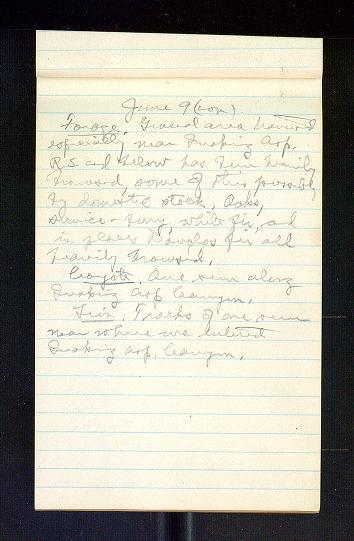 June 9 (con).
Forage. General area browsed
especially near Quaking Asp.
R.S. and below has been heavily
browsed, some of this possibly
by domestic stock. Oaks,
service-berry, white fir, and
in places Douglas fir all
heavily browsed.
Coyote. One seen along
Quaking Asp Canyon.
Lion. Tracks of one seen
near where we entered
Quaking Asp. Canyon.